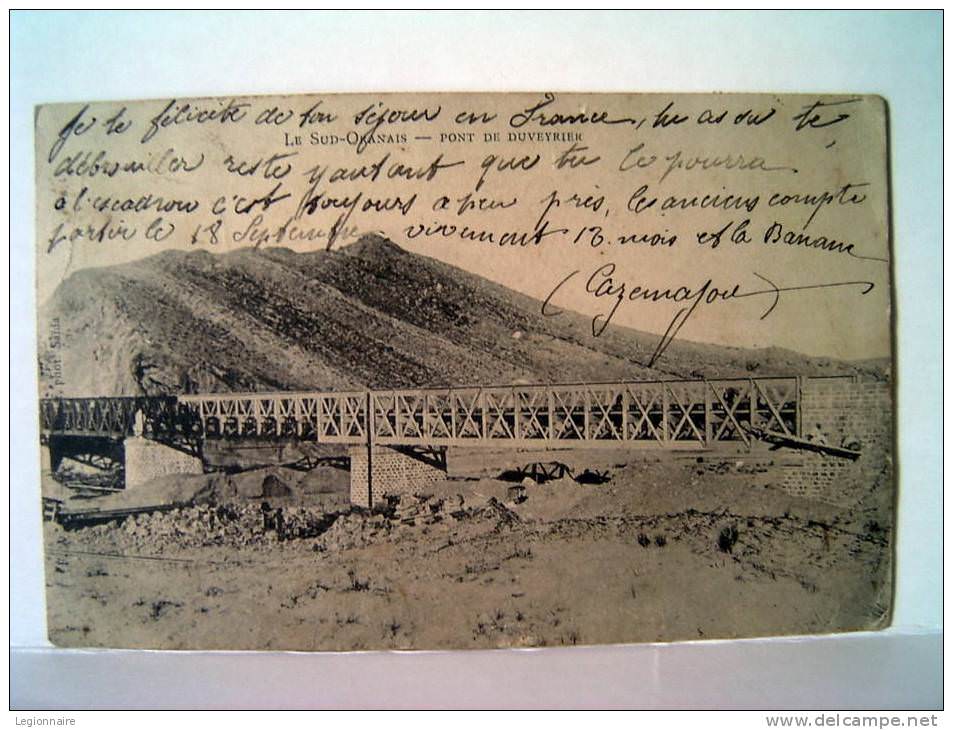 Je te félicite de ton séjour en France, tu as su te
LE SUD-ORANAIS — PONT DE DUVEYRIER
débrouiller reste y autant que tu le pourra
à l'escadron c'est toujours a peu près, les anciens compte
partir le 18 Septembre vivement 13 mois et la Banane
(Cazemajou)
phot
Legionnaire
www.delcampe.net